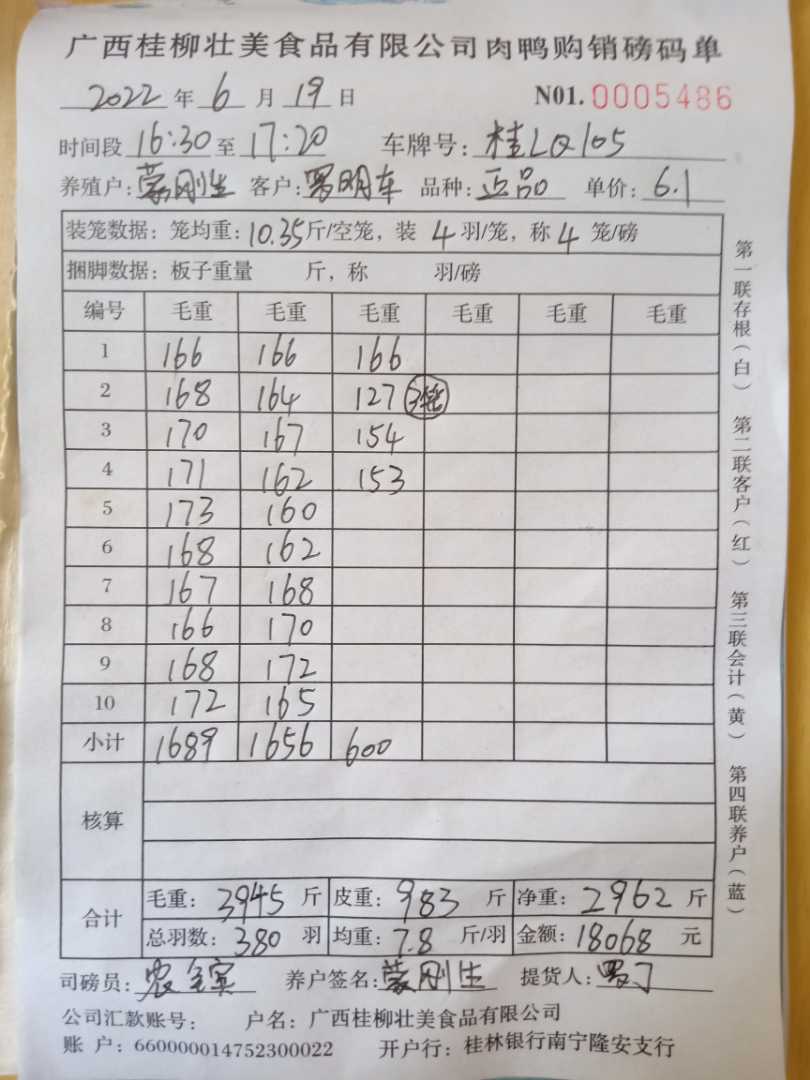 广西桂柳壮美食品有限公司肉鸭购销磅码单
2022 年 6 月 19 日 N01. 0005486
时间段 16:30 至 17:20 车牌号: 桂LQ105
养殖户: 蒙刚生 客户: 罗明车 品种: 正品 单价: 6.1
装笼数据: 笼均重: 10.35 斤/空笼, 装 4 羽/笼, 称 4 笼/磅
捆脚数据: 板子重量 斤, 称 羽/磅
编号 毛重 毛重 毛重 毛重 毛重 毛重
1 166 166 166
2 168 164 127 3笼
3 170 167 154
4 171 162 153
5 173 160
6 168 162
7 167 168
8 166 170
9 168 172
10 172 165
小计 1689 1656 600
核算
合计 毛重: 3945 斤 皮重: 983 斤 净重: 2962 斤
总羽数: 380 羽 均重: 7.8 斤/羽 金额: 18068 元
司磅员: 农 宾 养户签名: 蒙刚生 提货人: 罗
公司汇款账号: 户名: 广西桂柳壮美食品有限公司
账 户: 660000014752300022 开户行: 桂林银行南宁隆安支行
第一联存根(白) 第二联客户(红) 第三联会计(黄) 第四联养户(蓝)